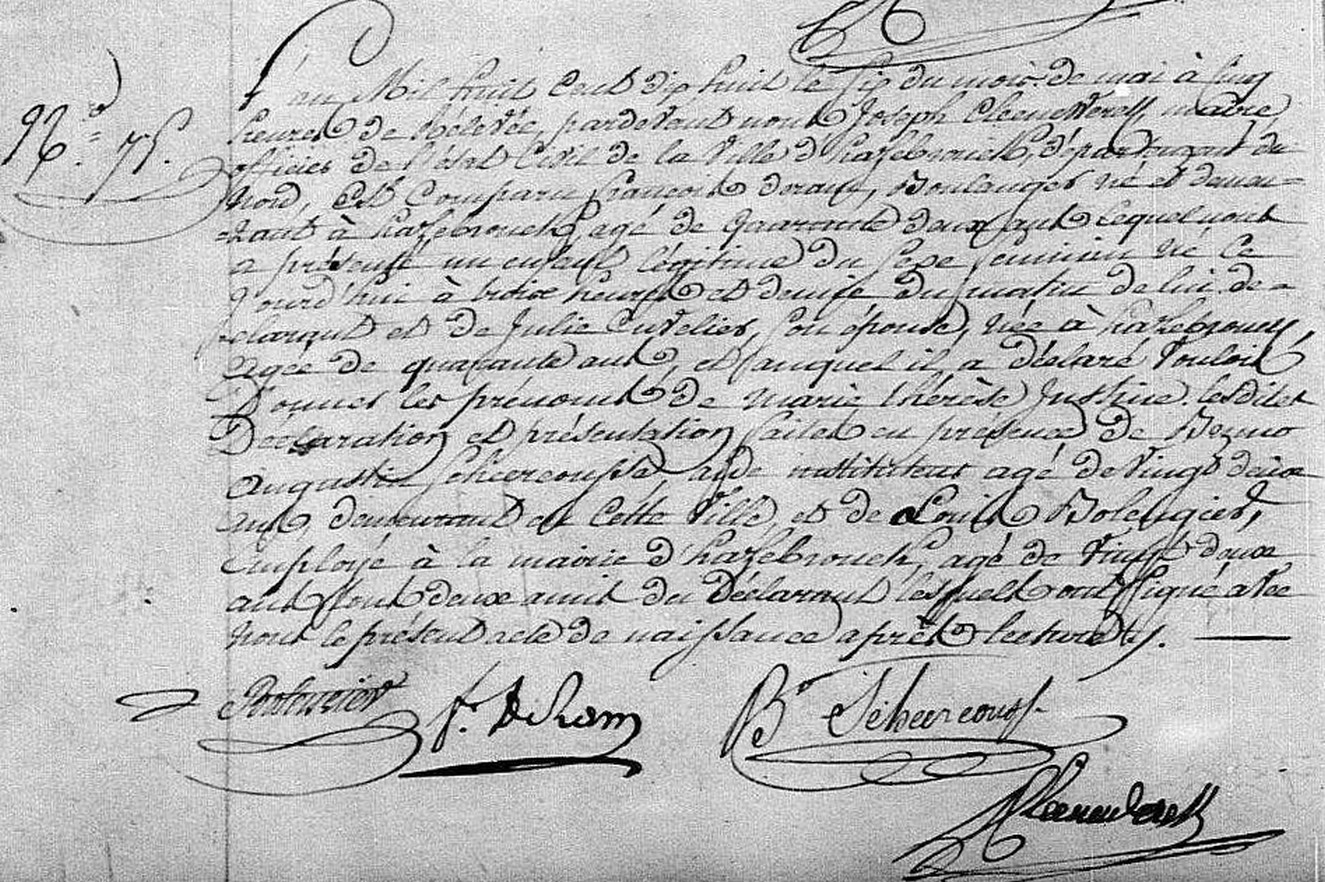 N.º 75.
L'an Mil huit Cent dix huit le six du mois de mai à cinq
heures de Rélevée, pardevant nous Joseph Cleenewerck, maire
officier de l'état Civil de la Ville d'hazebrouck, départemant du
Nord, Est Comparu françois deram, Boulanger né et demeu=
=rant à hazebrouck, agé de quarante deux ans lequel nous
a présenté un enfant légitime du sexe féminin né Ce
Jourd'hui à troix heures et demise du matin de lui dé=
clarant et de Julie Cuvelier, son épouse, née à hazebrouck,
agée de quarante ans, et auquel il a déclaré Vouloir
Donner les prénoms de marie thérèse Justine. lesdites
Déclaration et présentation faites en présence de Benno
augustin Scheercousse, aide instituteur agé de Vingt deux
ans, demeurant en cette Ville, et de Louis Bolengier,
Employé à la mairie d'hazebrouck, agé de Vingt deux
ans, tous deux amis du Déclarant lesquels ont signé avec
Nous le présent acte de naissance après lecture.
Bolengier f. DeRam B.º Scheercouss
Cleenewerck